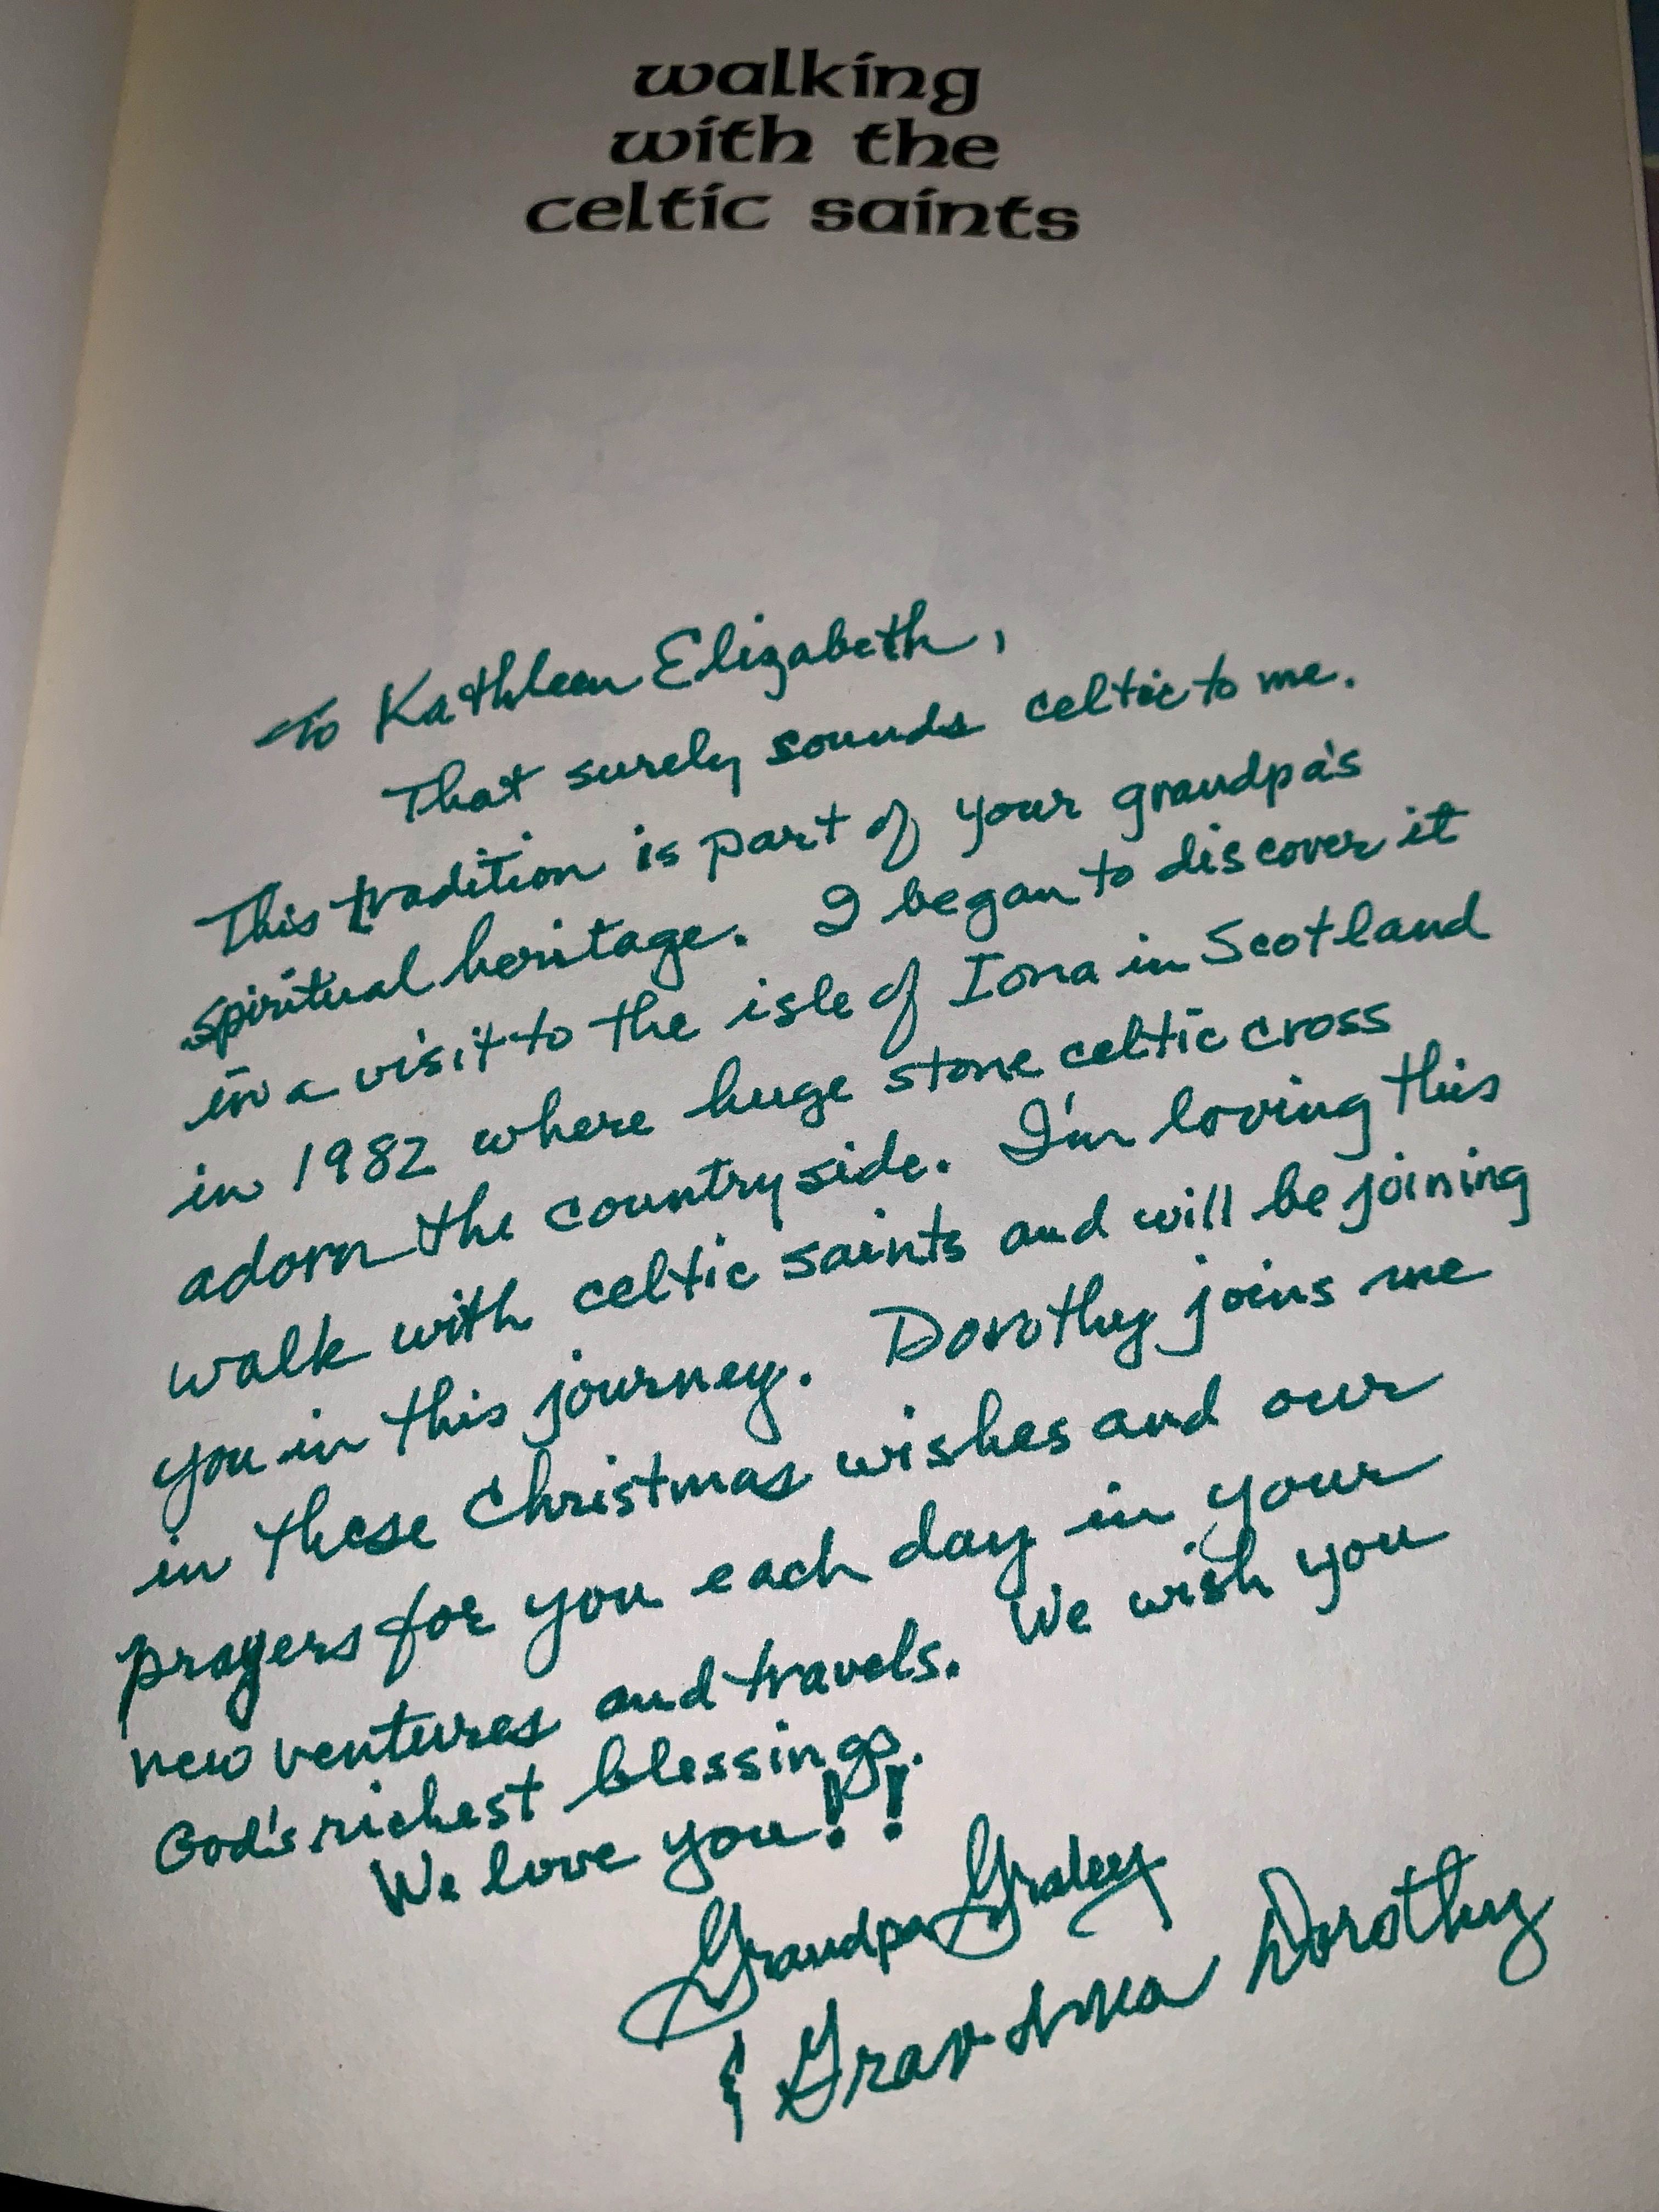 walking
with the
celtic saints
To Kathleen Elizabeth,
That surely sounds celtic to me.
This tradition is part of your grandpa's
spiritual heritage. I began to discover it
in a visit to the isle of Iona in Scotland
in 1982 where huge stone celtic cross
adorn the countryside. I'm loving this
walk with celtic saints and will be joining
you in this journey. Dorothy joins me
in these Christmas wishes and our
prayers for you each day in your
new ventures and travels. We wish you
God's richest blessings.
We love you!!
Grandpa
& Grandma Dorothy